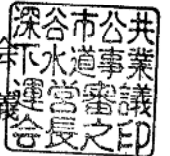 深谷市公共
下水道事業
運営審議
会長之印